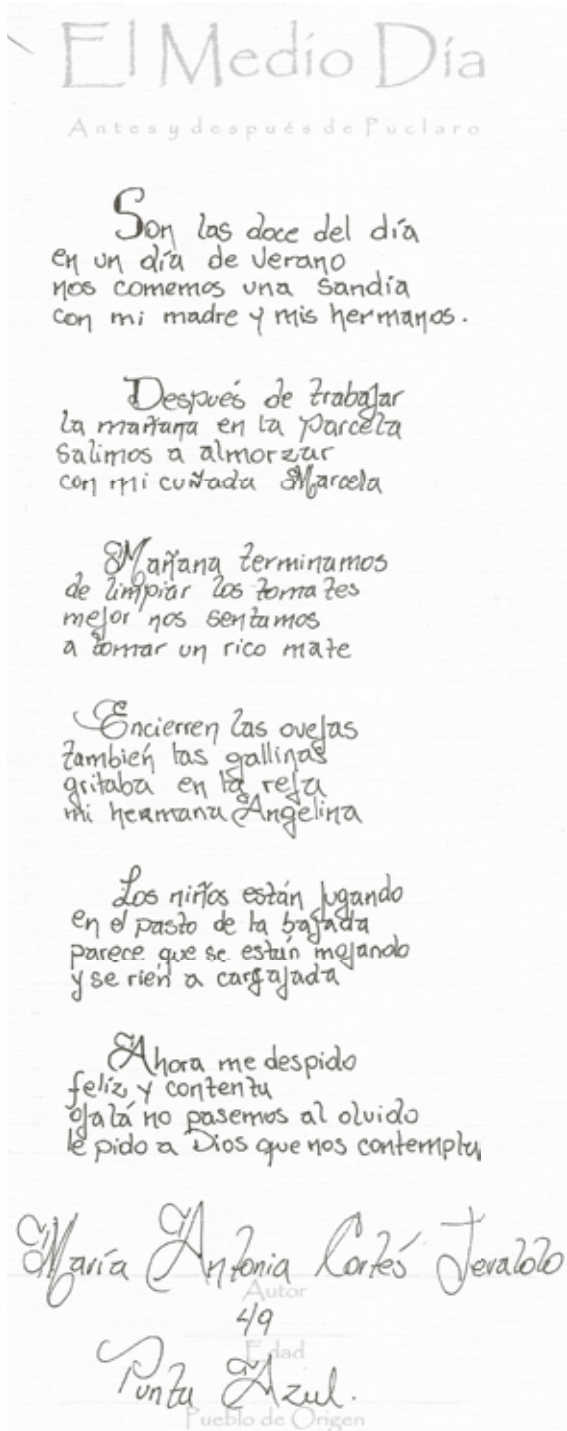 El Medio Día
Antes y después de Puclaro
Son las doce del día
en un día de verano
nos comemos una sandía
con mi madre y mis hermanos.
Después de trabajar
la mañana en la parcela
salimos a almorzar
con mi cuñada Marcela
Mañana terminamos
de limpiar los tomates
mejor nos sentamos
a tomar un rico mate
Encierren las ovejas
también las gallinas
gritaba en la reja
mi hermana Angelina
Los niños están jugando
en el pasto de la bajada
parece que se están mojando
y se rien a cargajada
Ahora me despido
feliz y contenta
ojalá no pasemos al olvido
le pido a Dios que nos contempla
María Antonia Cortés
Autor
49
Edad
Punta Azul.
Pueblo de Origen